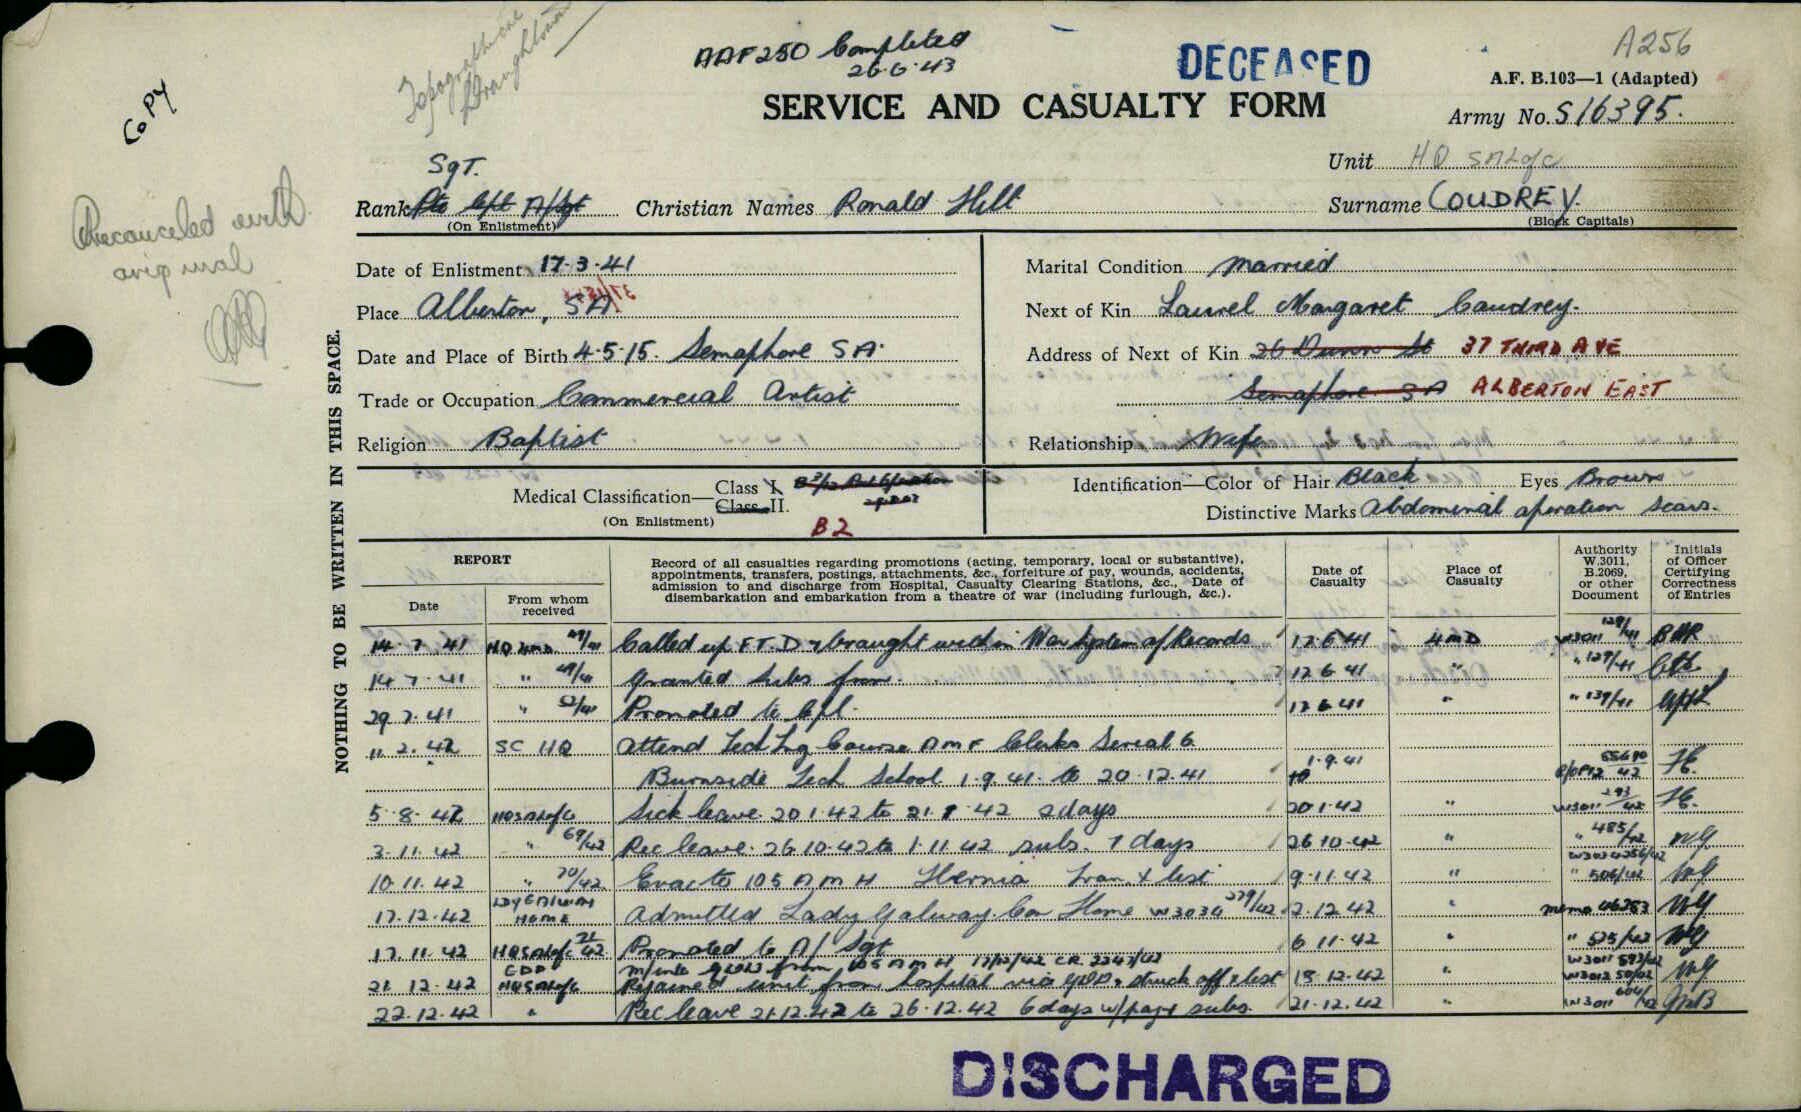 Topographical
Draughtsman
AAF250 Completed
26·6·43
DECEASED
A256
A.F. B.103—1 (Adapted)
COPY
SERVICE AND CASUALTY FORM
Army No. S16395.
Sgt.
Unit HQ SALofC
Rank Pte Cpl A/Sgt
Christian Names Ronald Hilt
Surname COUDREY.
(On Enlistment)
(Block Capitals)
original
NOTHING TO BE WRITTEN IN THIS SPACE.
Date of Enlistment 17·3·41
Marital Condition Married
Place Alberton, SA
Next of Kin Laurel Margaret Coudrey.
Date and Place of Birth 4·5·15. Semaphore SA.
Address of Next of Kin 26 Dunn St 37 THIRD AVE
Trade or Occupation Commercial Artist
Semaphore SA ALBERTON EAST
Religion Baptist
Relationship Wife
Medical Classification—Class I.
Class II.
(On Enlistment)
B2
Identification—Color of Hair Black Eyes Brown
Distinctive Marks Abdominal operation scars.
REPORT
Date
From whom received
Record of all casualties regarding promotions (acting, temporary, local or substantive),
appointments, transfers, postings, attachments, &c., forfeiture of pay, wounds, accidents,
admission to and discharge from Hospital, Casualty Clearing Stations, &c., Date of
disembarkation and embarkation from a theatre of war (including furlough, &c.).
Date of Casualty
Place of Casualty
Authority W.3011, B.2069, or other Document
Initials of Officer Certifying Correctness of Entries
14·7·41 HQ 4MD 49/41 Called up F.T.D & brought within War System of Records 12 6 41 4MD W3011 129/41
14 7·41 " 49/41 Granted subs from 12 6 41 " " 129/41
29 7·41 " 52/41 Promoted to Cpl. 12 6 41 " " 139/41
11 2·42 SC HQ Attend Tech Trg Course AMF Clerks Serial 6
Burnside Tech School 1·9·41 to 20·12·41 1·9·41 55690/42
5·8·42 HQSALofC Sick leave 20 1·42 to 21·1·42 2 days 20 1·42 " W3011 293/42
3·11·42 " 69/42 Rec leave 26·10·42 to 1·11·42 subs. 7 days 26·10·42 " " 485/42
W3034256/42
10·11·42 " 70/42 Evac to 105 AMH Hernia Tran. X list 9·11·42 " " 506/42
17·12·42 LDY GALWAY HOME Admitted Lady Galway Con Home W3034 279/42 2·12 42 " Memo 46283
17·11·42 HQSALofC 71/42 Promoted to A/Sgt 6 11·42 " " 525/42
GDD from 105 AMH 17/12/42
21·12·42 HQSALofC Rejoined unit from hospital via GDD & struck off X list 18·12·42 " W3011 592/42 W3012 50/42
22·12·42 " Rec leave 21·12·42 to 26·12·42 6 days w/pay & subs. 21·12·42 " W3011 604/42
DISCHARGED